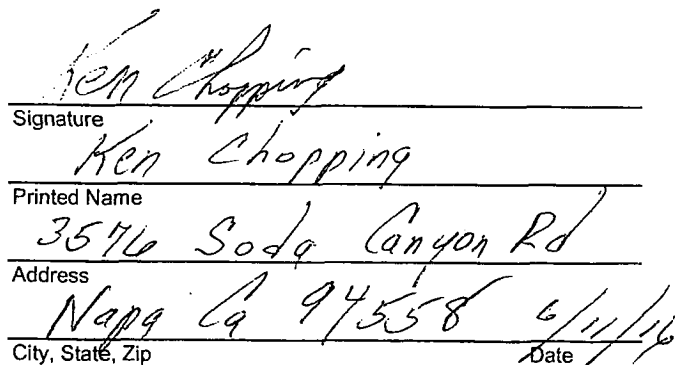 Ken Chopping
Signature
Ken Chopping
Printed Name
3576 Soda Canyon Rd
Address
Napa Ca 94558 6/11/16
City, State, Zip Date